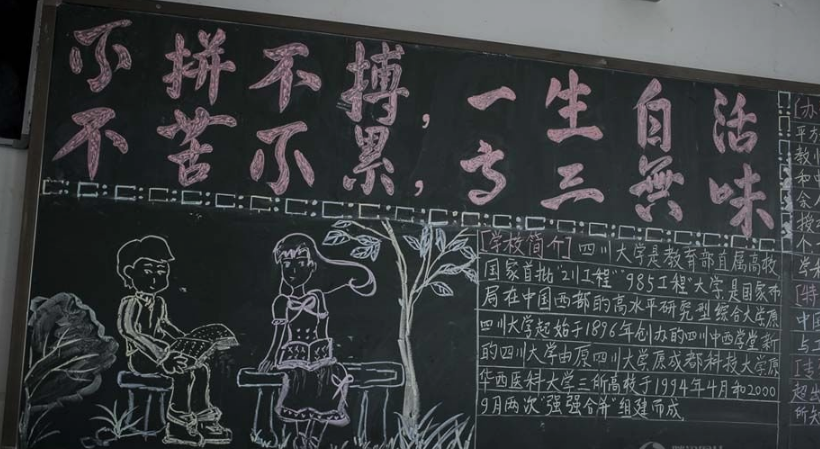 不拼不搏，一生自活
不苦不累，高三無味
[学校简介]四川大学是教育部直属高校
国家首批"211工程""985工程"大学是国家布
局在中国西部的高水平研究型综合大学原
四川大学起始于1896年创办的四川中西学堂新
的四川大学由原四川大学原成都科技大学原
华西医科大学三所高校于1994年4月和2000
9月两次"强强合并"组建而成
[办
平方
教
和中
会
授
个
学科
[特
中国
与工
超出
所知